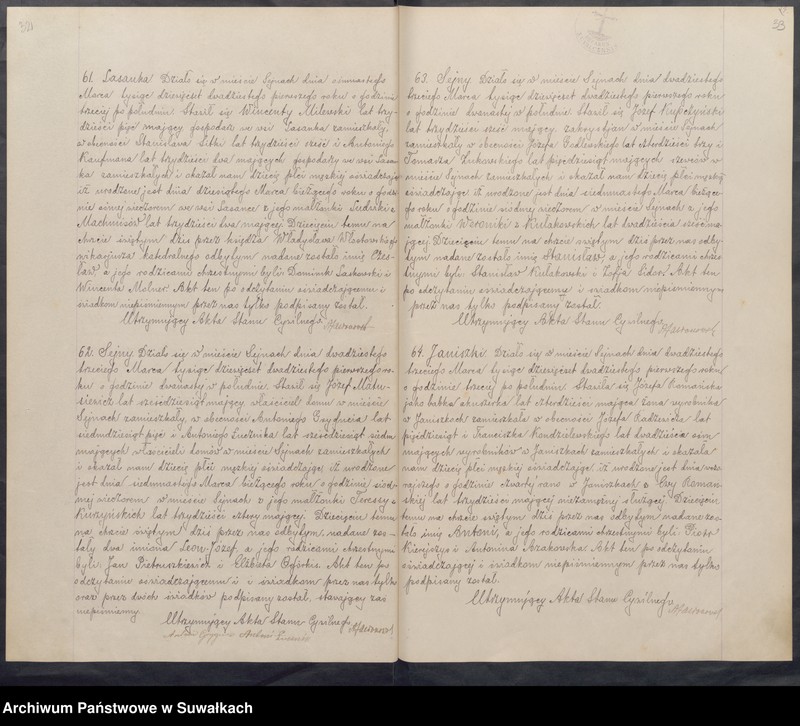 33
61. Sasanka Działo się w mieście Sejnach dnia osiemnastego
Marca tysiąc dziewięćset dwudziestego pierwszego roku o godzinie
trzeciej po południu. Stawił się Wincenty Milewski lat trzy-
dzieści pięć mający gospodarz we wsi Sasanka zamieszkały
w obecności Stanisława Sitki lat trzydzieści sześć i Antoniego
Kaufmana lat trzydzieści dwa mających gospodarzy we wsi Sasan-
ka zamieszkałych i okazał nam dziecię płci męskiej oświadczając
iż urodzone jest dnia dziesiątego Marca bieżącego roku o godzi-
nie siódmej wieczorem we wsi Sasance z jego małżonki Ludwiki z
lat trzydzieści dwa mającej. Dziecięciu temu na
chrzcie świętym dziś przez księdza Władysława
wikarjusza katedralnego odbytym nadane zostało imię Czes-
ław a jego rodzicami chrzestnymi byli: Dominik Sackowski i
Wincenta Molner. Akt ten po odczytaniu oświadczającemu i
świadkom niepiśmiennym przez nas tylko podpisany został.
Utrzymujący Akta Stanu Cywilnego
62. Sejny. Działo się w mieście Sejnach dnia dwudziestego
trzeciego Marca tysiąc dziewięćset dwudziestego pierwszego ro-
ku o godzinie dwunastej w południe. Stawił się Józef Matu-
siewicz lat sześćdziesiąt mający, właściciel domu w mieście
Sejnach zamieszkały, w obecności Antoniego lat
siedmdziesiąt pięć i Antoniego Łucznika lat sześćdziesiąt siedm
mających właścicieli domów w mieście Sejnach zamieszkałych
i okazał nam dziecię płci męskiej oświadczając iż urodzone
jest dnia siedmnastego Marca bieżącego roku o godzinie siód-
mej wieczorem w mieście Sejnach z jego małżonki Teresy z
Kuczyńskich lat trzydzieści cztery mającej. Dziecięciu temu
na chrzcie świętym dziś przez nas odbytym nadane zos-
tały dwa imiona Leon-Józef a jego rodzicami chrzestnymi
byli: Jan Pietruszkiewicz i Elżbieta Ogórkis. Akt ten po
odczytaniu oświadczającemu i świadkom przez nas tylko
oraz przez dwóch świadków podpisany został, stawający zaś
niepiśmienny.
Utrzymujący Akta Stanu Cywilnego
63. Sejny. Działo się w mieście Sejnach dnia dwudziestego
trzeciego Marca tysiąc dziewięćset dwudziestego pierwszego roku
o godzinie dwunastej w południe. Stawił się Józef
lat trzydzieści sześć mający, zakrystjan w mieście Sejnach
zamieszkały w obecności Józefa Godlewskiego lat czterdzieści trzy i
Tomasza Żukowskiego lat pięćdziesiąt mających szewców w
mieście Sejnach zamieszkałych i okazał nam dziecię płci męskiej
oświadczając iż urodzone jest dnia siedmnastego Marca bieżące-
go roku o godzinie siódmej wieczorem w mieście Sejnach z jego
małżonki Weroniki z Kułakowskich lat dwadzieścia sześć ma-
jącej. Dziecięciu temu na chrzcie świętym dziś przez nas odby-
tym nadane zostało imię Stanisław, a jego rodzicami chrze-
stnymi byli Stanisław Kułakowski i Zofja Sidor. Akt ten
po odczytaniu oświadczającemu i świadkom niepiśmiennym
przez nas tylko podpisany został.
Utrzymujący Akta Stanu Cywilnego
64. Janiszki. Działo się w mieście Sejnach dnia dwudziestego
trzeciego Marca tysiąc dziewięćset dwudziestego pierwszego roku
o godzinie trzeciej po południu. Stawiła się Józefa
jako babka akuszerka lat czterdzieści mająca żona wyrobnika
w Janiszkach zamieszkała w obecności Józefa Radzewicza lat
pięćdziesiąt i Franciszka lat dwadzieścia siedm
mających wyrobników w Janiszkach zamieszkałych i okazała
nam dziecię płci męskiej oświadczając iż urodzone jest dnia wczo-
rajszego o godzinie czwartej rano w Janiszkach z Ewy Roman-
skiej lat trzydzieści mającej niezamężnej służącej. Dziecięciu
temu na chrzcie świętym dziś przez nas odbytym nadane zos-
tało imię Antoni, a jego rodzicami chrzestnymi byli: Piotr
i Antonina Akt ten po odczytaniu
oświadczającej i świadkom niepiśmiennym przez nas tylko
podpisany został.
Utrzymujący Akta Stanu Cywilnego
Archiwum Państwowe w Suwałkach